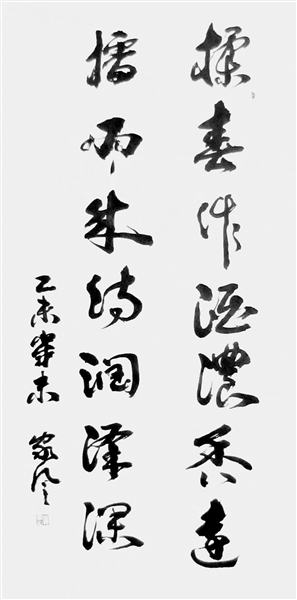 揉春作酒濃香遠
播雨成詩潤澤深
乙未歲末 家